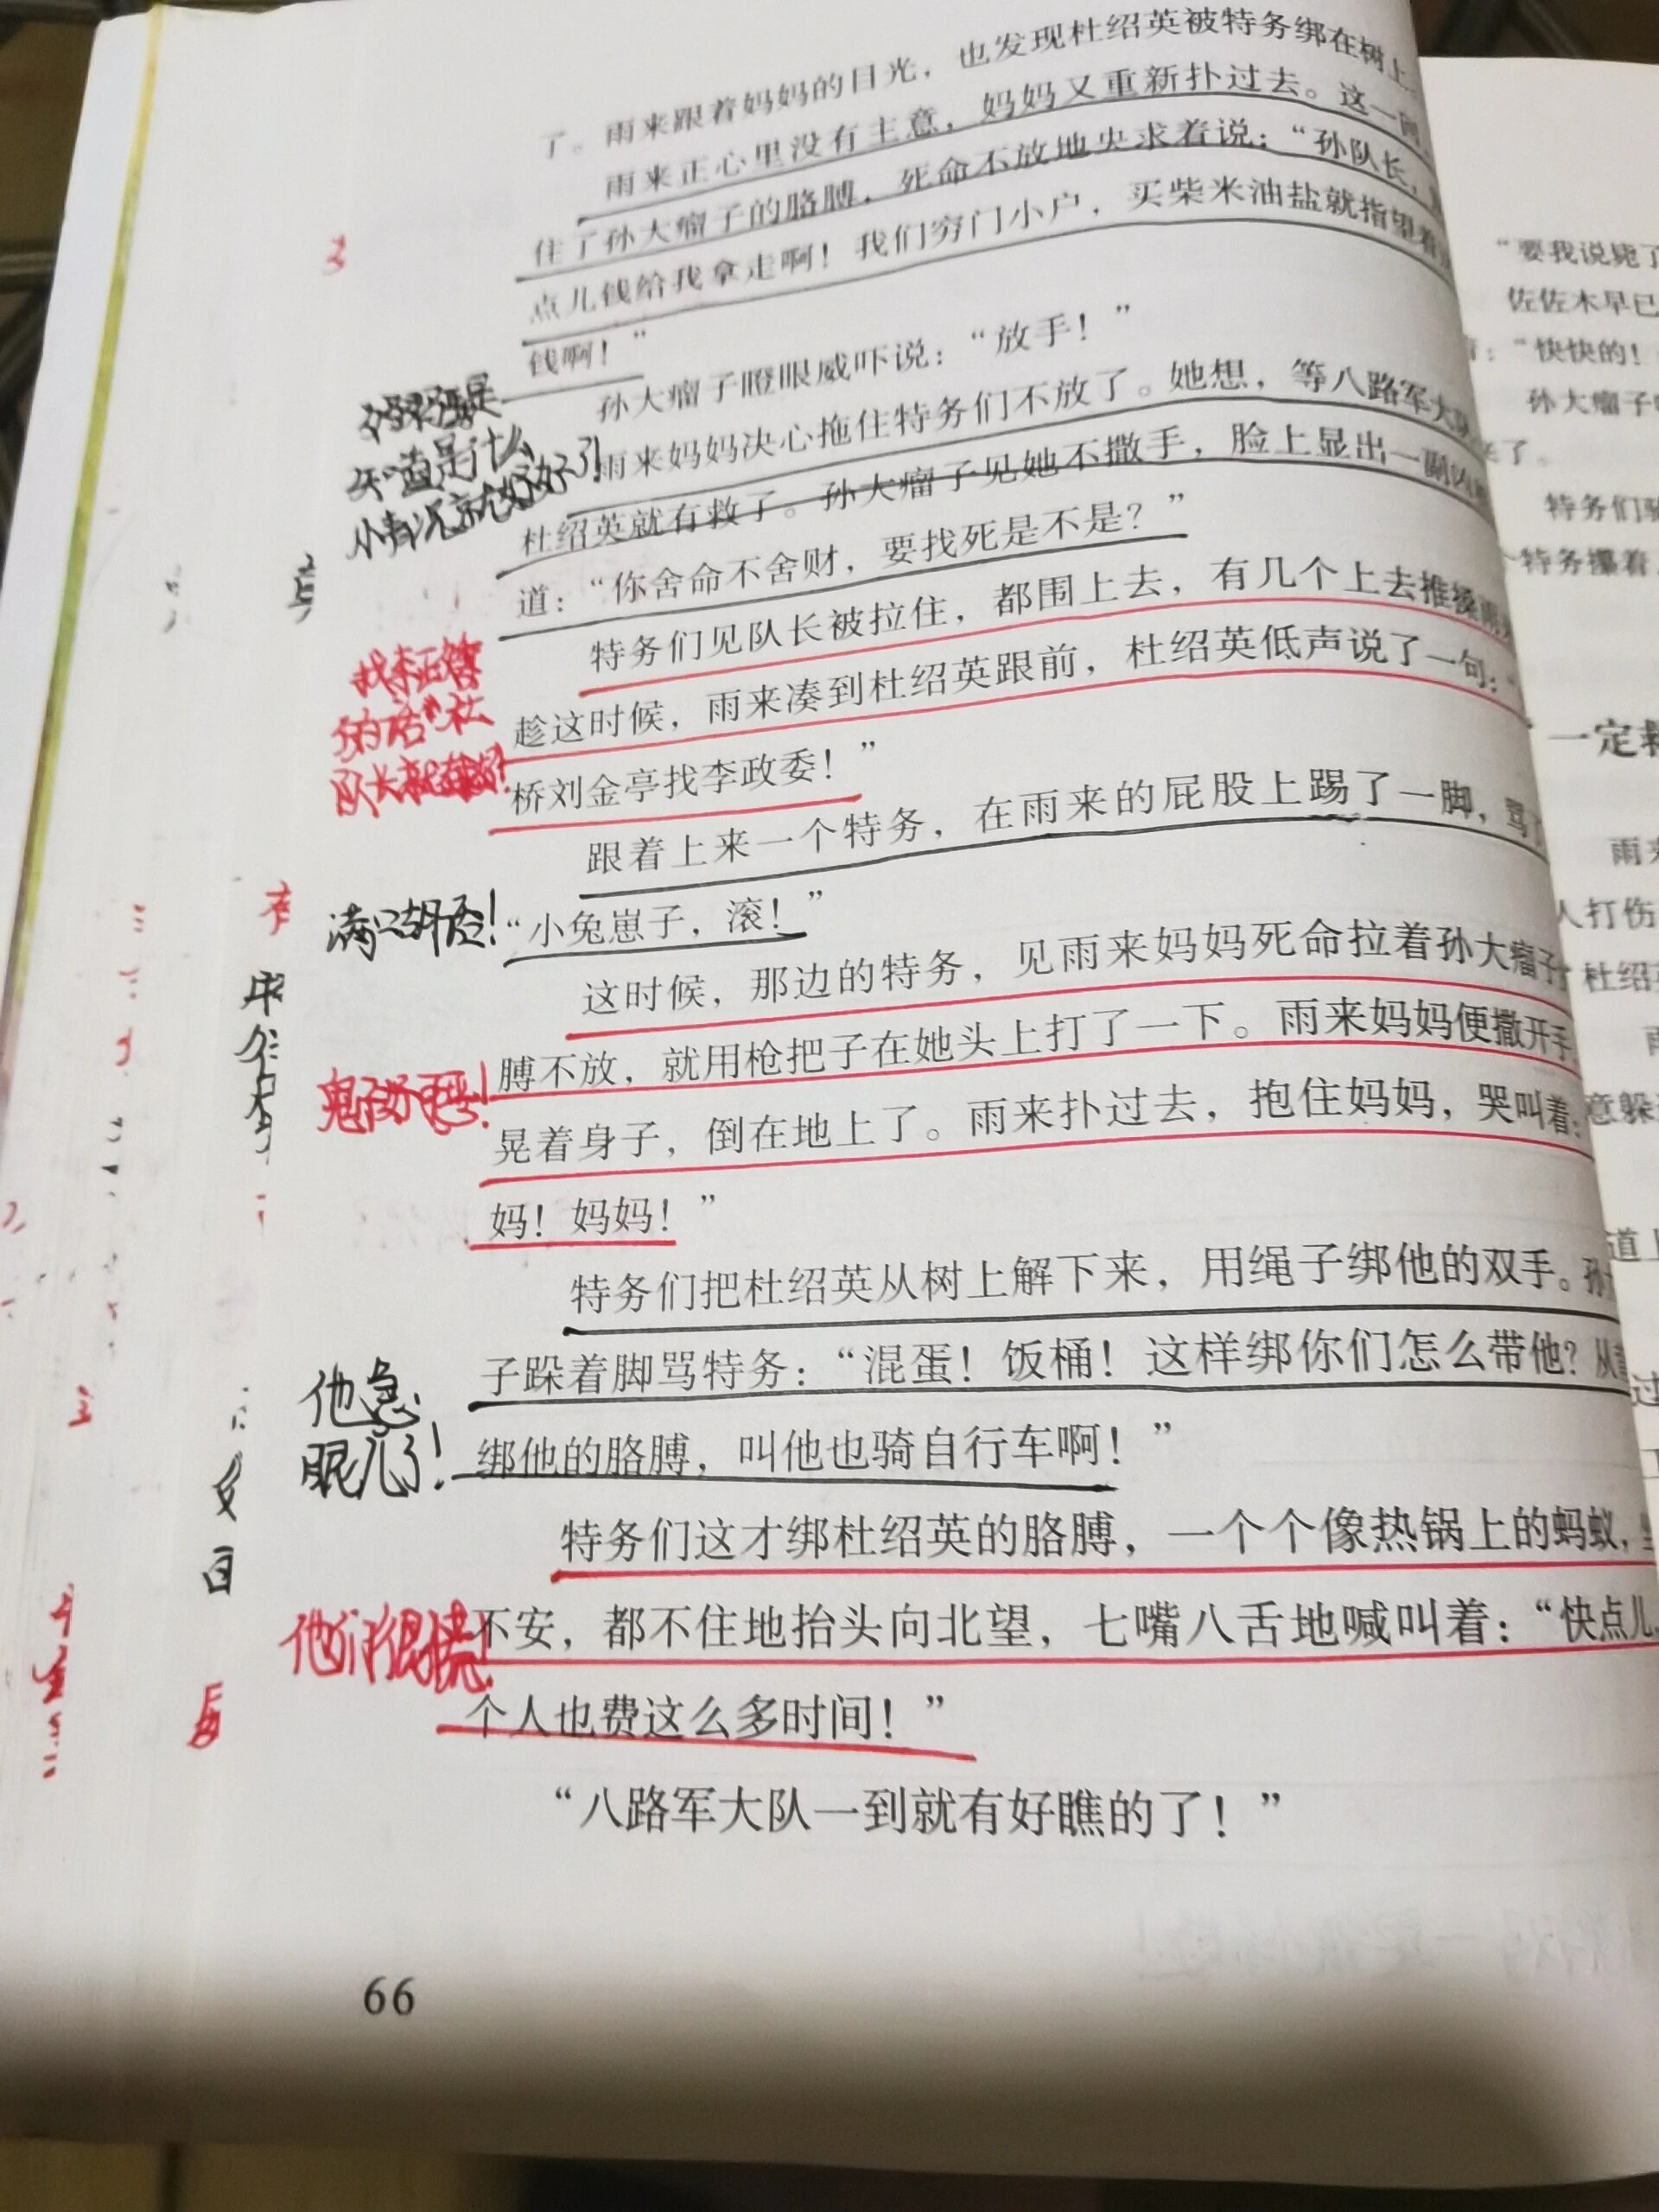 了。雨来跟着妈妈的目光，也发现杜绍英被特务绑在树上
雨来正心里没有主意，妈妈又重新扑过去。这一
住了孙大瘤子的胳膊，死命不放地央求着说：“孙队长，
点儿钱给我拿走啊！我们穷门小户，买柴米油盐就指望着
钱啊！”
孙大瘤子瞪眼威吓说：“放手！”
雨来妈妈决心拖住特务们不放了。她想，等八路军大
杜绍英就有救了。孙大瘤子见她不撒手，脸上显出一副凶
道：“你舍命不舍财，要找死是不是？”
知道是什么
情况就好了！
特务们见队长被拉住，都围上去，有几个上去推搡
趁这时候，雨来凑到杜绍英跟前，杜绍英低声说了一句：“
桥刘金亭找李政委！”
找李政委
的话，杜
队长就有救了！
跟着上来一个特务，在雨来的屁股上踢了一脚，骂
“小兔崽子，滚！”
满口胡言！
这时候，那边的特务，见雨来妈妈死命拉着孙大瘤子
膊不放，就用枪把子在她头上打了一下。雨来妈妈便撒开手，
晃着身子，倒在地上了。雨来扑过去，抱住妈妈，哭叫着：
妈！妈妈！”
特务们把杜绍英从树上解下来，用绳子绑他的双手。孙
子跺着脚骂特务：“混蛋！饭桶！这样绑你们怎么带他？从
绑他的胳膊，叫他也骑自行车啊！”
他急
眼儿了！
特务们这才绑杜绍英的胳膊，一个个像热锅上的蚂蚁，
不安，都不住地抬头向北望，七嘴八舌地喊叫着：“快点儿，
个人也费这么多时间！”
他们很慌！
“八路军大队一到就有好瞧的了！”
66
“要我说毙了
佐佐木早已
：“快快的！
孙大瘤子
来了。
特务们骑
个特务攥着
一定救
雨来
人打伤
杜绍英
意躲
道上
过